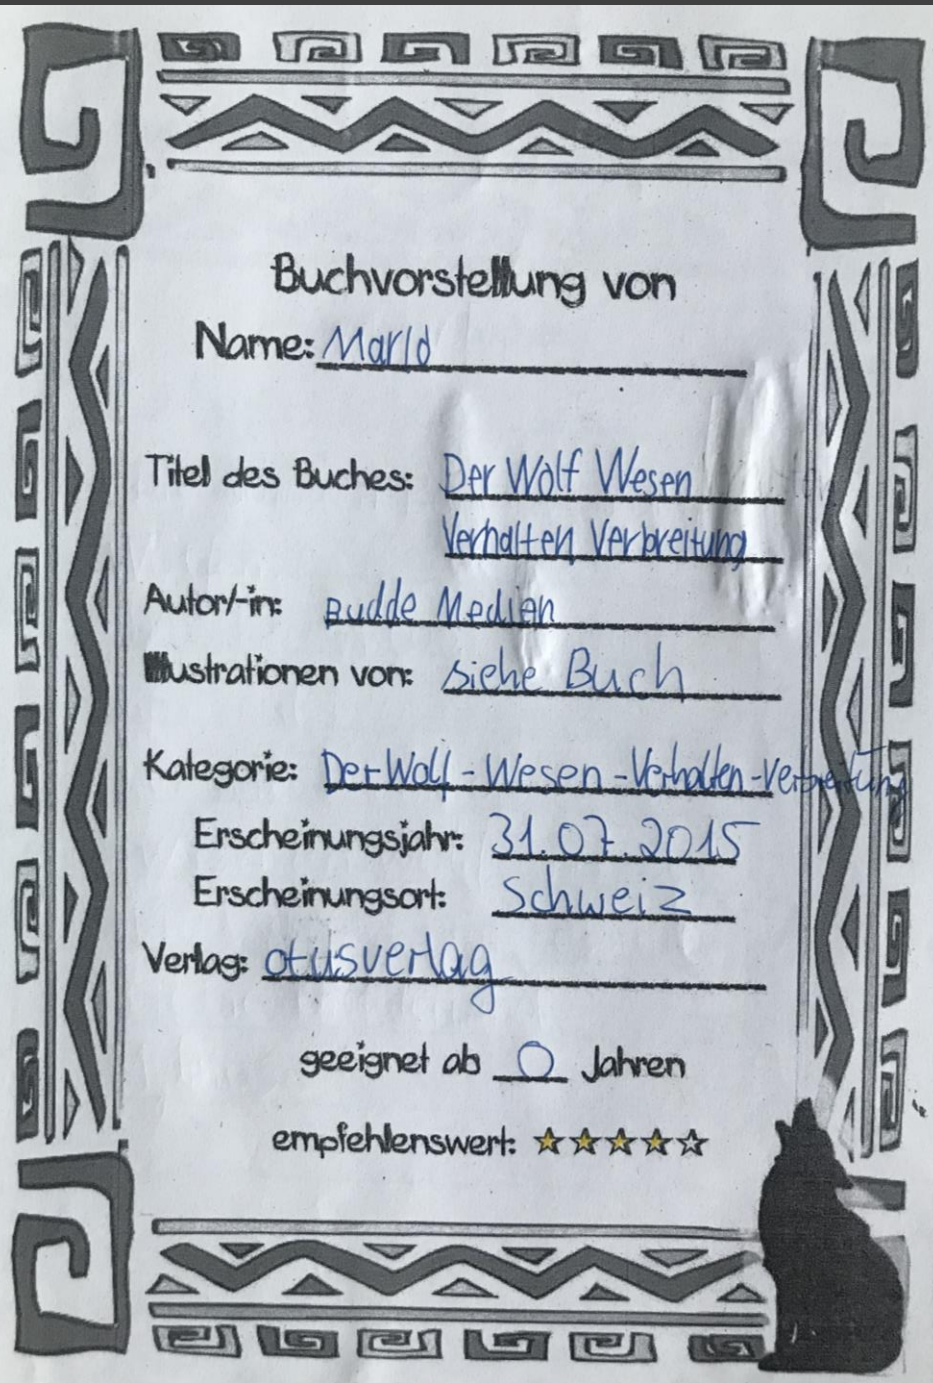 Buchvorstellung von
Name: Marld
Titel des Buches: Der Wolf Wesen
Verhalten Verbreitung
Autor/-in: Budde Medien
Illustrationen von: siehe Buch
Kategorie: Der Wolf - Wesen - Verhalten - Verbreitung
Erscheinungsjahr: 31.07.2015
Erscheinungsort: Schweiz
Verlag: otusverlag
geeignet ab 0 Jahren
empfehlenswert: